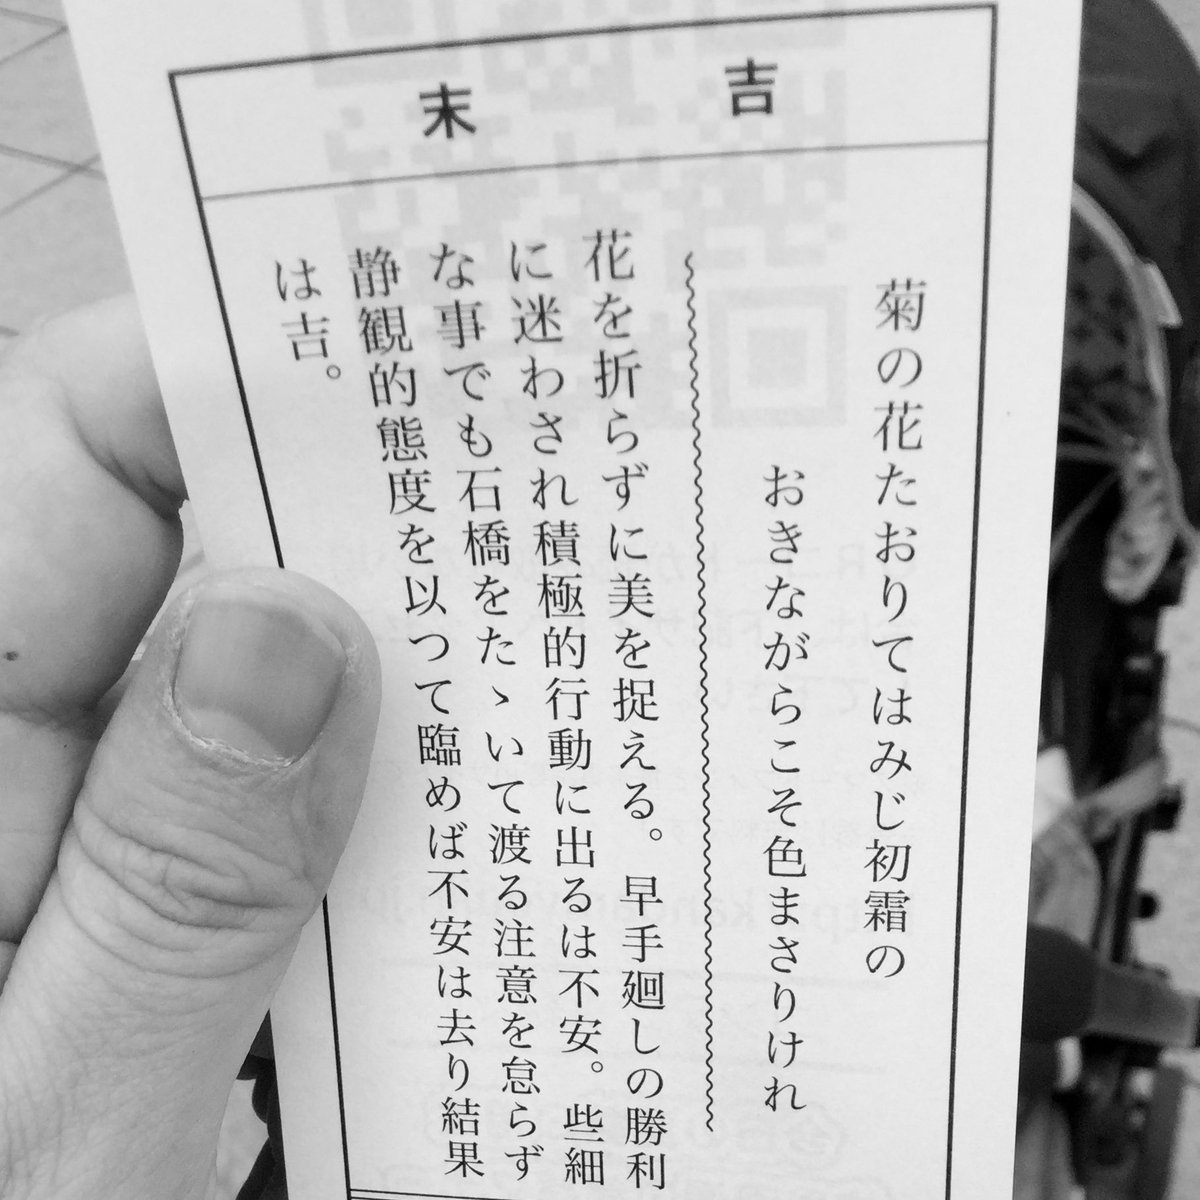 末吉
菊の花たおりてはみじ初霜の
おきながらこそ色まさりけれ
花を折らずに美を捉える。早手廻しの勝利
に迷わされ積極的行動に出るは不安。些細
な事でも石橋をたゝいて渡る注意を怠らず
静観的態度を以つて臨めば不安は去り結果
は吉。